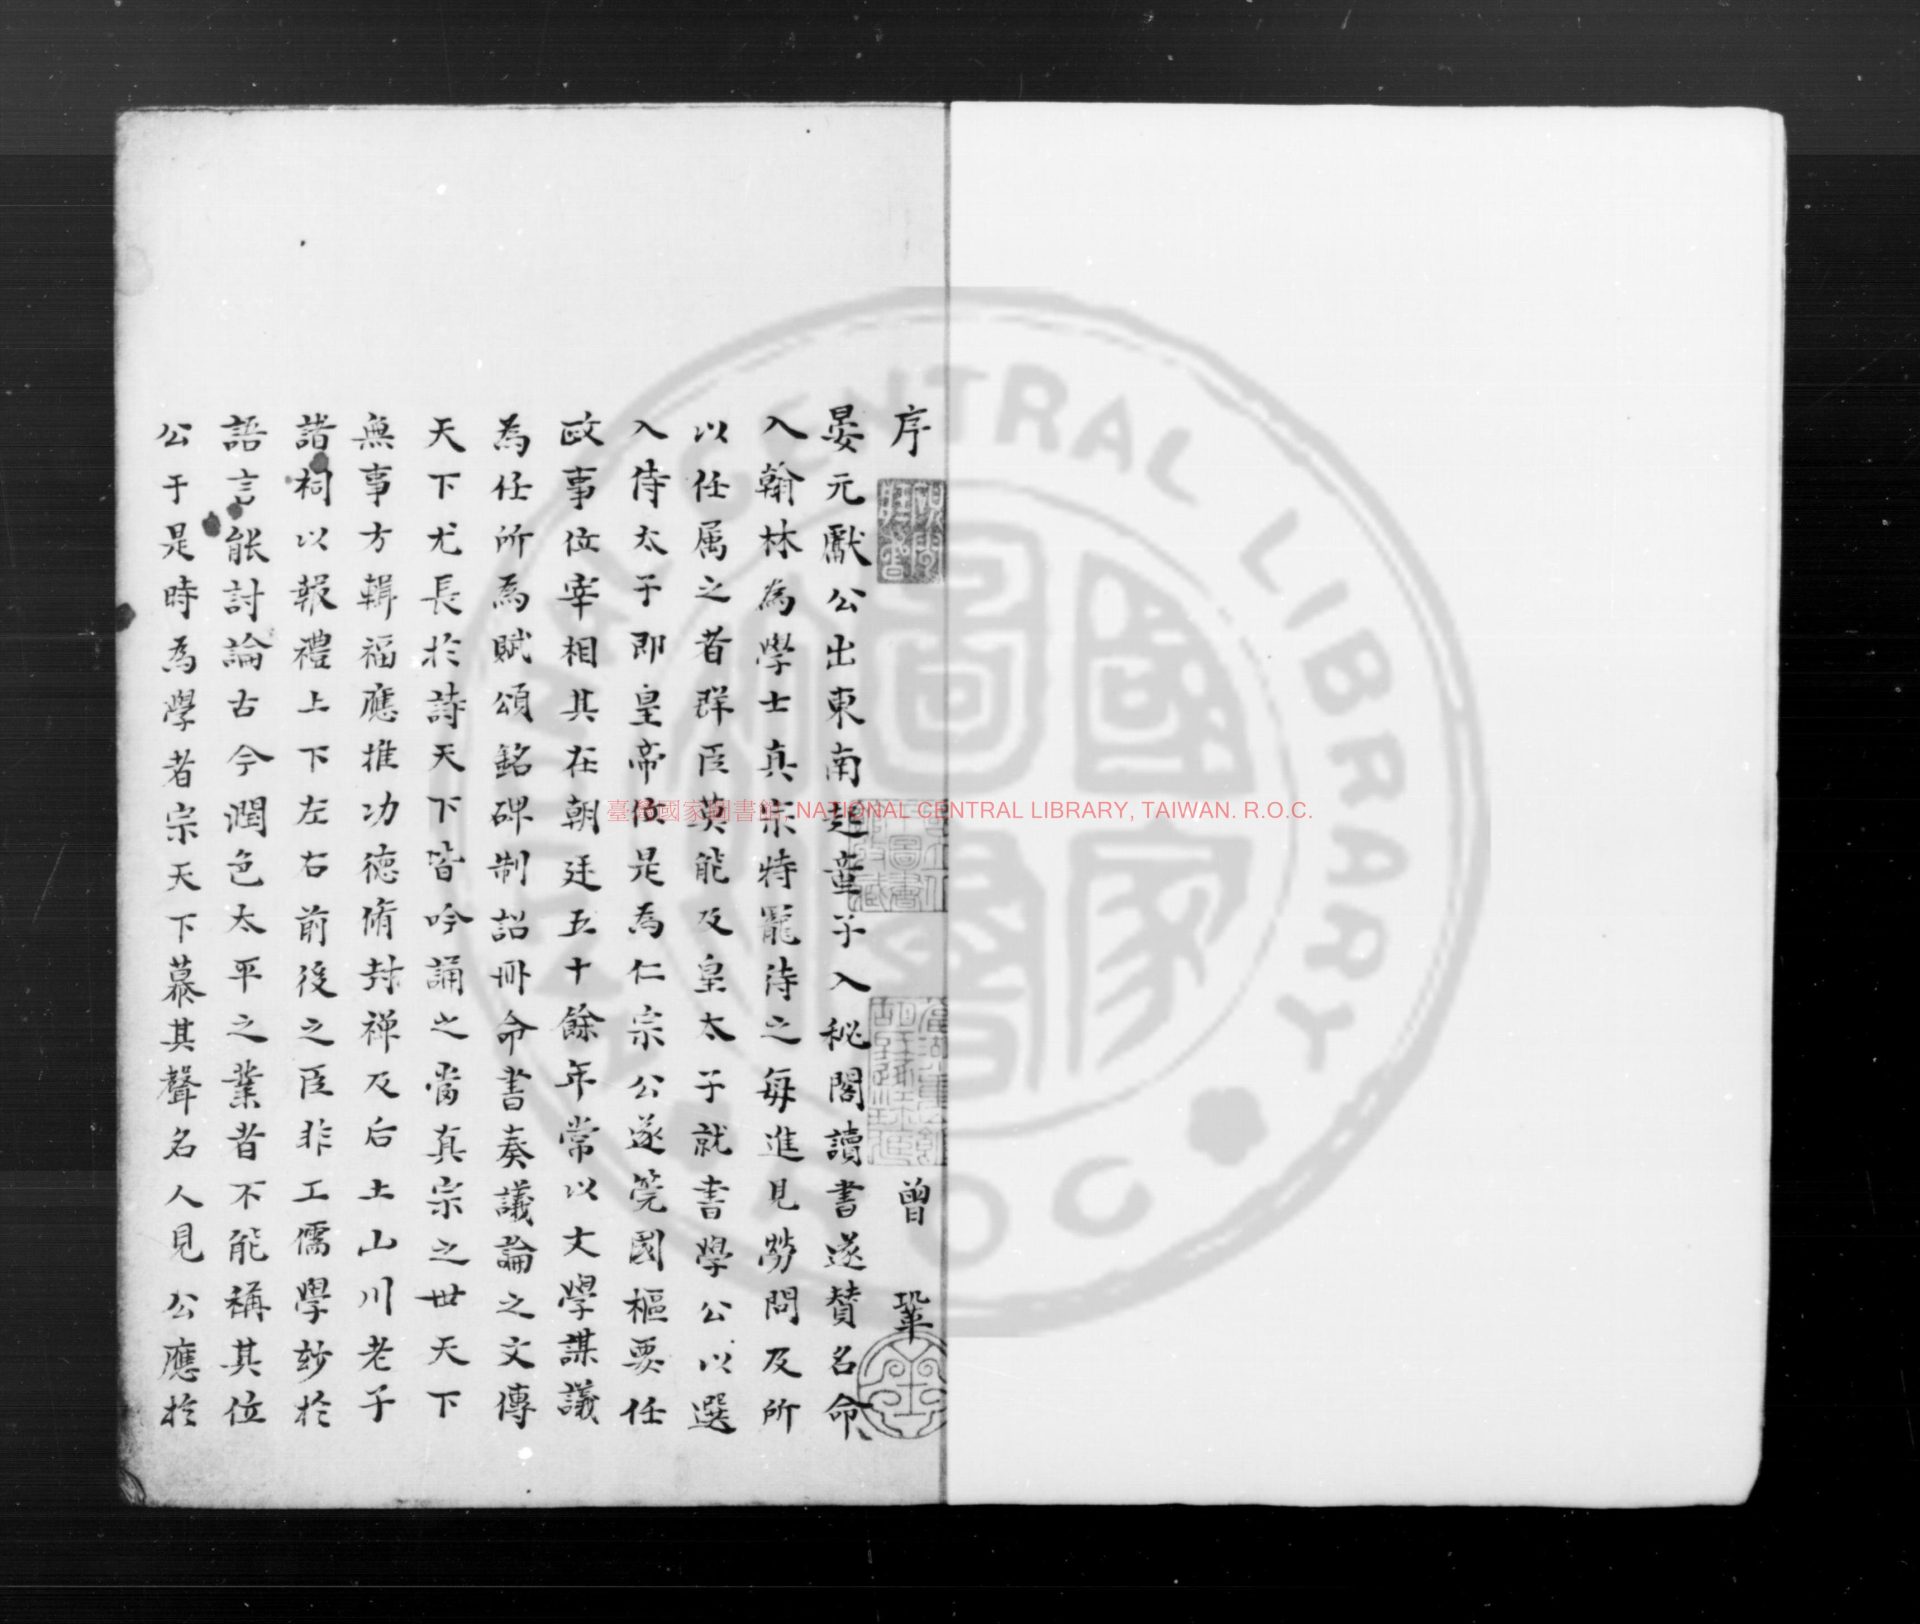 序 曾 鞏
晏元獻公出東南起童子入秘閣讀書遂賛名命
入翰林為學士真宗特寵待之每進見勞問及所
以任属之者群臣莫能及皇太子就書學公以選
入侍太子即皇帝位是為仁宗公遂筦國樞要任
政事位宰相其在朝廷五十餘年常以文學謀議
為任所為賦頌銘碑制詔冊命書奏議論之文傳
天下尤長於詩天下皆吟誦之當真宗之世天下
無事方輯福應推功德脩封禅及后土山川老子
諸祠以報禮上下左右前後之臣非工儒學妙於
語言能討論古今潤色太平之業者不能稱其位
公于是時為學者宗天下慕其聲名人見公應於
臺灣國家圖書館, NATIONAL CENTRAL LIBRARY, TAIWAN. R.O.C.
NATIONAL CENTRAL LIBRARY
R.O.C.
國家圖書館